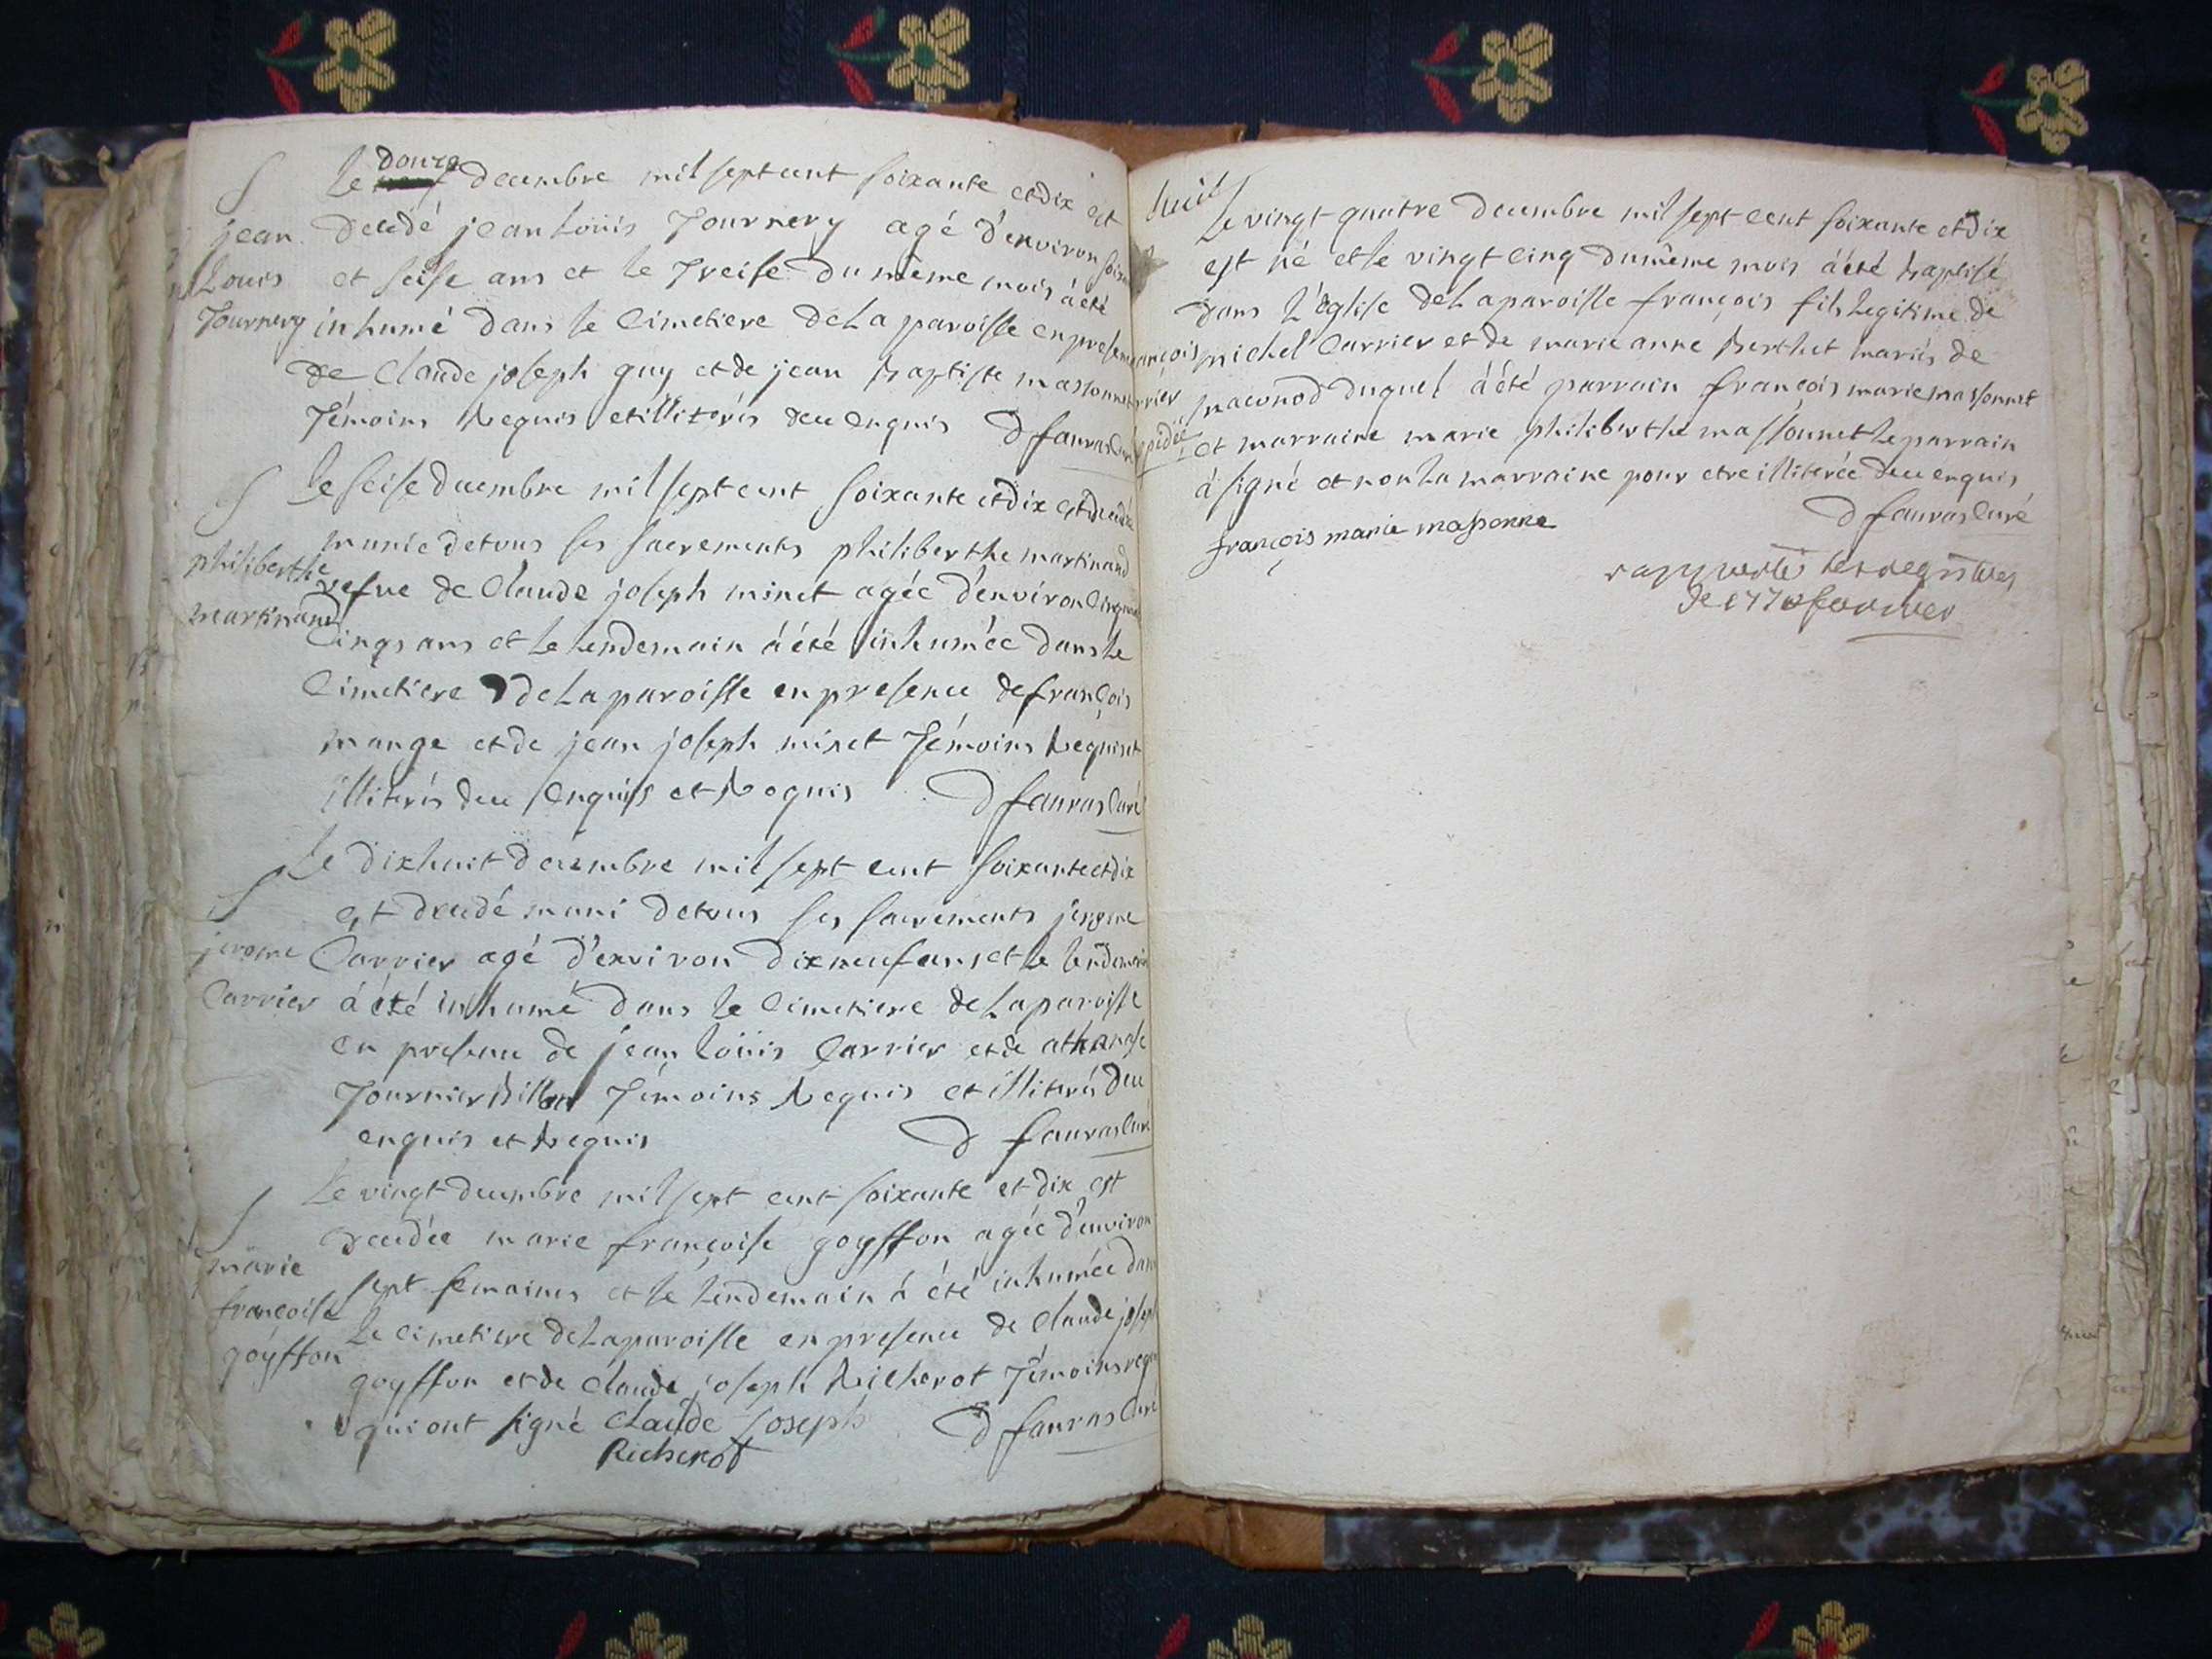 Le douze decembre mil sept cent soixante et dix est
jean decedé jean loüis Tournery agé d'environ soix
Louis et seise ans et le Treise du même mois á été
Tournery inhumé dans le Cimetiere de La paroisse en presen
de Claude joseph guy et de jean baptiste massonnet
Témoins Requis et illiterés deu enquis D fauras Curé
Le seise decembre mil sept cent soixante et dix est decedée
munie de tous ses sacrements philiberthe martinand
philiberthe vefve de Claude joseph minet agée d'environ Cinquante
martinand Cinqs ans et le lendemain á été inhumée dans le
Cimetiere de La paroisse en presence de françois
mange et de jean joseph minet Témoins Requis et
illiterés deu enquis et Requis D fauras Curé
Le dixhuit decembre mil sept cent soixante et dix
est decedé muni de tous ses sacrements jerome
jerome Carrier agé d'environ dixneuf ans et le lendemain
Carrier á été inhumé dans le Cimetiere de La paroisse
en presence de jean loüis Carrier et de athanase
Tournier billon Témoins Requis et illiterés deu
enquis et Requis D fauras Curé
Le vingt decembre mil sept cent soixante et dix est
decedée marie françoise goyffon agée d'environ
marie sept semaines et le lendemain á été inhumée dans
françoise Le Cimetiere de La paroisse en presence de Claude joseph
goyffon goyffon et de Claude joseph Richerot Témoins requ
qui ont signé Claude Joseph D fauras Curé
Richerot
huit
Le vingt quatre decembre mil sept cent soixante et dix
est né et le vingt cinq du même mois á été baptisé
dans L'église de La paroisse françois fils legitime de
ançois michel Carrier et de marie anne berthet mariés de
rrier naconod duquel á été parrain françois marie massonnet
et marraine marie philiberthe massonnet le parrain
á signé et non La marraine pour etre illiterée deu enquis
françois marie massonne D fauras Curé
les registres
de 1770